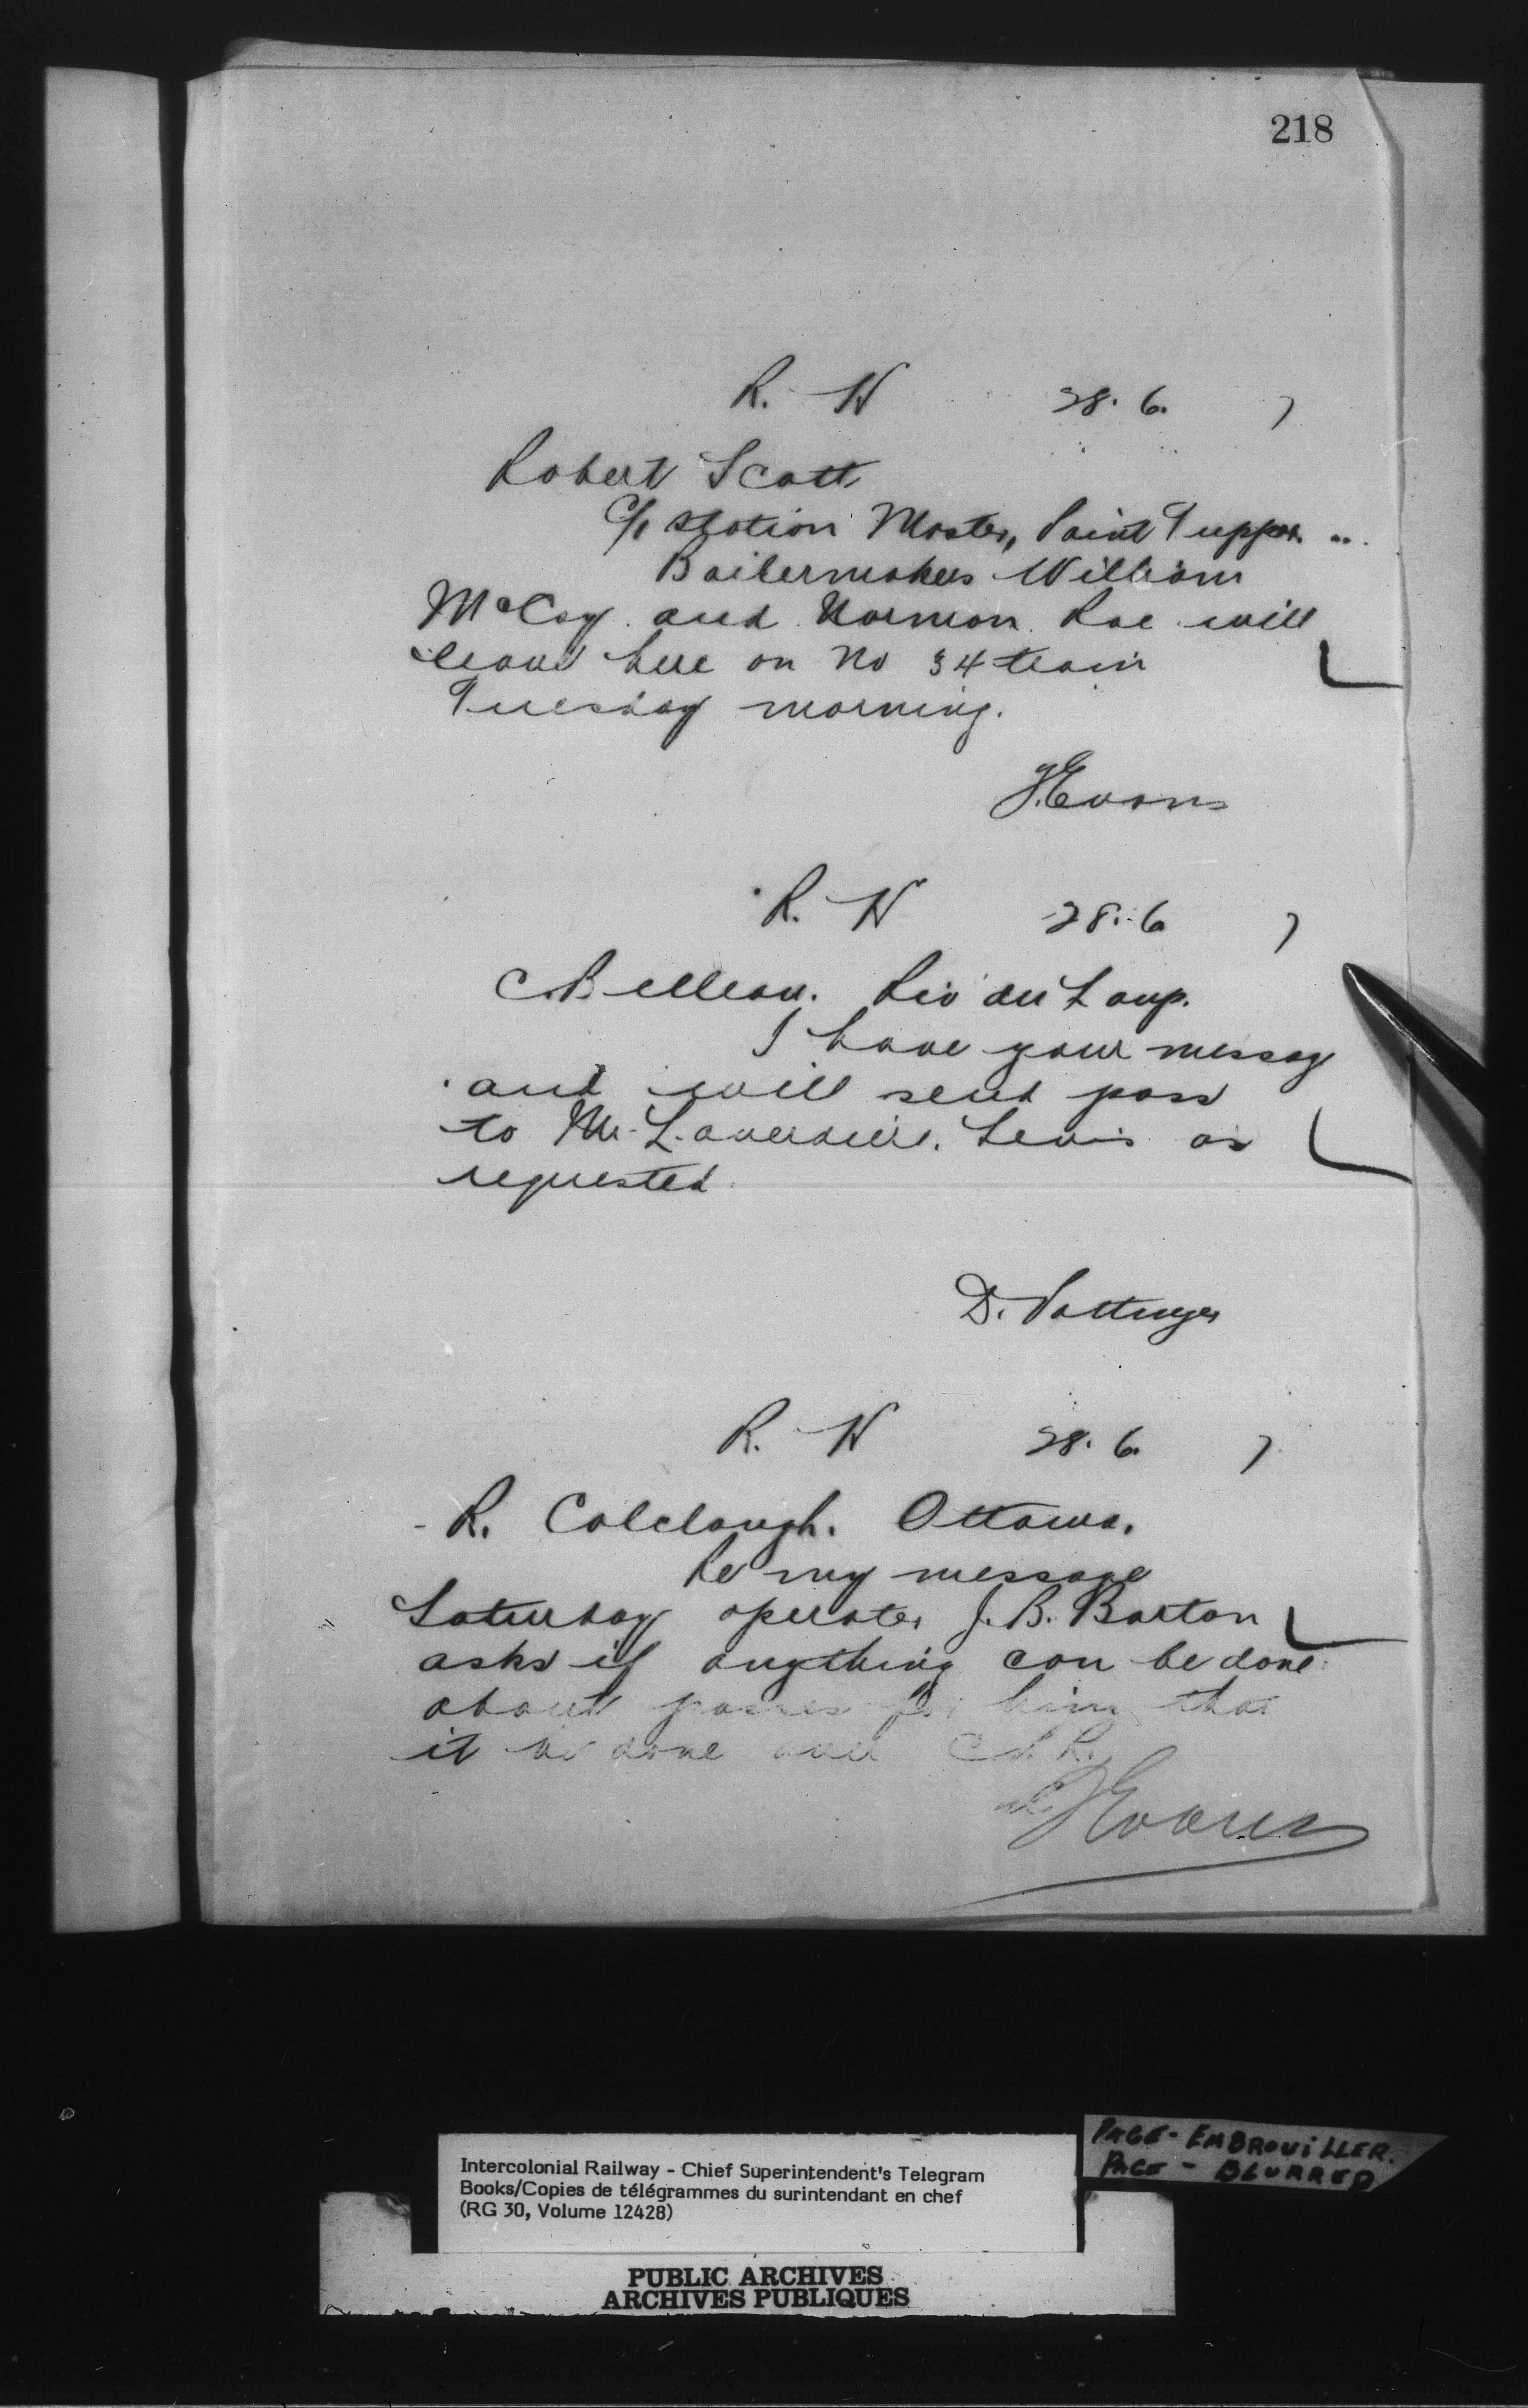 218
R. N 28. 6. 7
Robert Scott
c/o Station Master, Point Tupper.
Boilermakers William
McCoy and Norman Rae will
leave here on No 34 train
Tuesday morning.
J. Evans
R. N 28. 6 7
C Belleau. Riv du Loup.
I have your messag
and will send pass
to Mr. Laverdiere. Levis as
requested
D. Pottinger
R. N 28. 6. 7
R. Colclough. Ottawa.
Re my message
Saturday operator J. B. Barton
asks if anything can be done
about passes for him
it be done over
Evans
PAGE - EMBROUILLER.
PAGE - BLURRED
Intercolonial Railway - Chief Superintendent's Telegram
Books/Copies de télégrammes du surintendant en chef
(RG 30, Volume 12428)
PUBLIC ARCHIVES
ARCHIVES PUBLIQUES